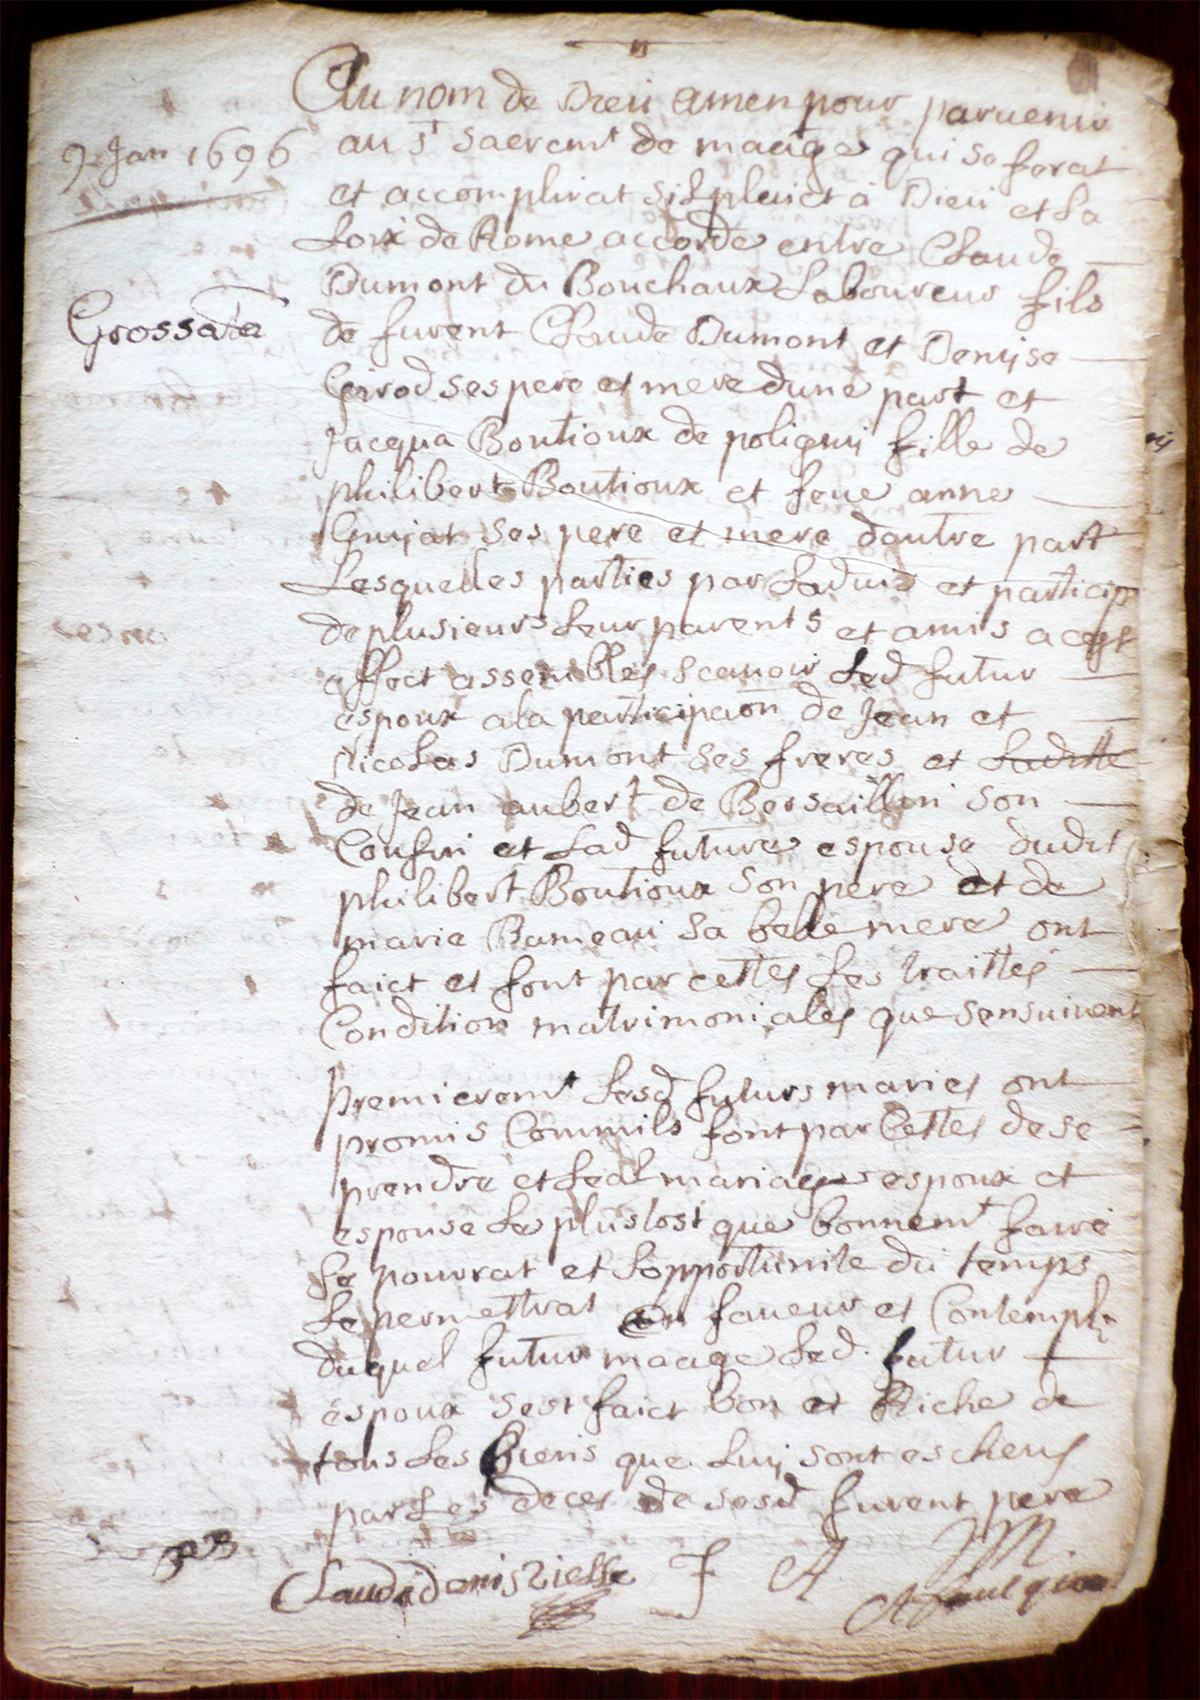 Au nom de Dieu amen pour parvenir
9 Jan 1696
au st sacremt de maage qui se ferat
et accomplirat sil plaict a Dieu et La
Loix de Rome accorde entre Claude
Dumont du Bouchaux Laboureur fils
Grossata
de furent Claude Dumont et Denise
Girod ses pere et mere dune part et
Jacqua Boutioux de poligny fille de
philibert Boutioux et feue anne
Guyat ses pere et mere dautre part
Lesquelles parties par Laduis et particip
de plusieurs Leur parents et amis a cest
effect assembles scauoir Led futur
espoux a la participaon de Jean et
Nicolas Dumont ses freres et Laditte
de Jean aubert de Bersaillin son
Cousin et Lad future espouse dudit
philibert Boutioux son pere et de
marie Rameau sa belle mere ont
faict et font par cettes Les traittes
Condition matrimoniales que sensuivent
premieremt Lesd futurs maries ont
promis Comm ils font par Cettes de se
prendre et Led mariage espoux et
espouse Le plustost que bonnemt faire
Se pourrat et Lopportunite du temps
Le permettrat En faueur et Contempl
duquel futur maage Led. futur
espoux sest faict bon et Riche de
tous Les biens que Luy sont escheus
par Les deces de sesd furent pere
PB
Claude denis Vielle F A JM